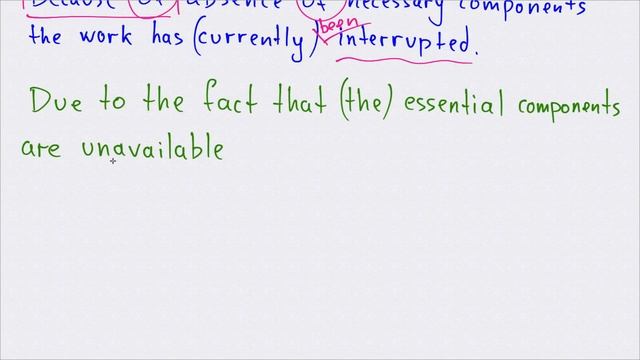 Because of absence of necessary components
been
the work has (currently) interrupted.
Due to the fact that (the) essential components
are unavailable